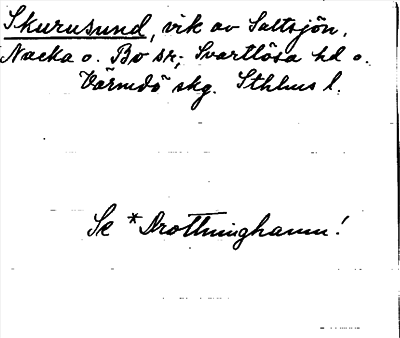 Skurusund, vik av Saltsjön,
Nacka o. Bo sr; Svartlösa hd o.
Värmdö skg. Sthlms l.
Se *Drottninghamn!